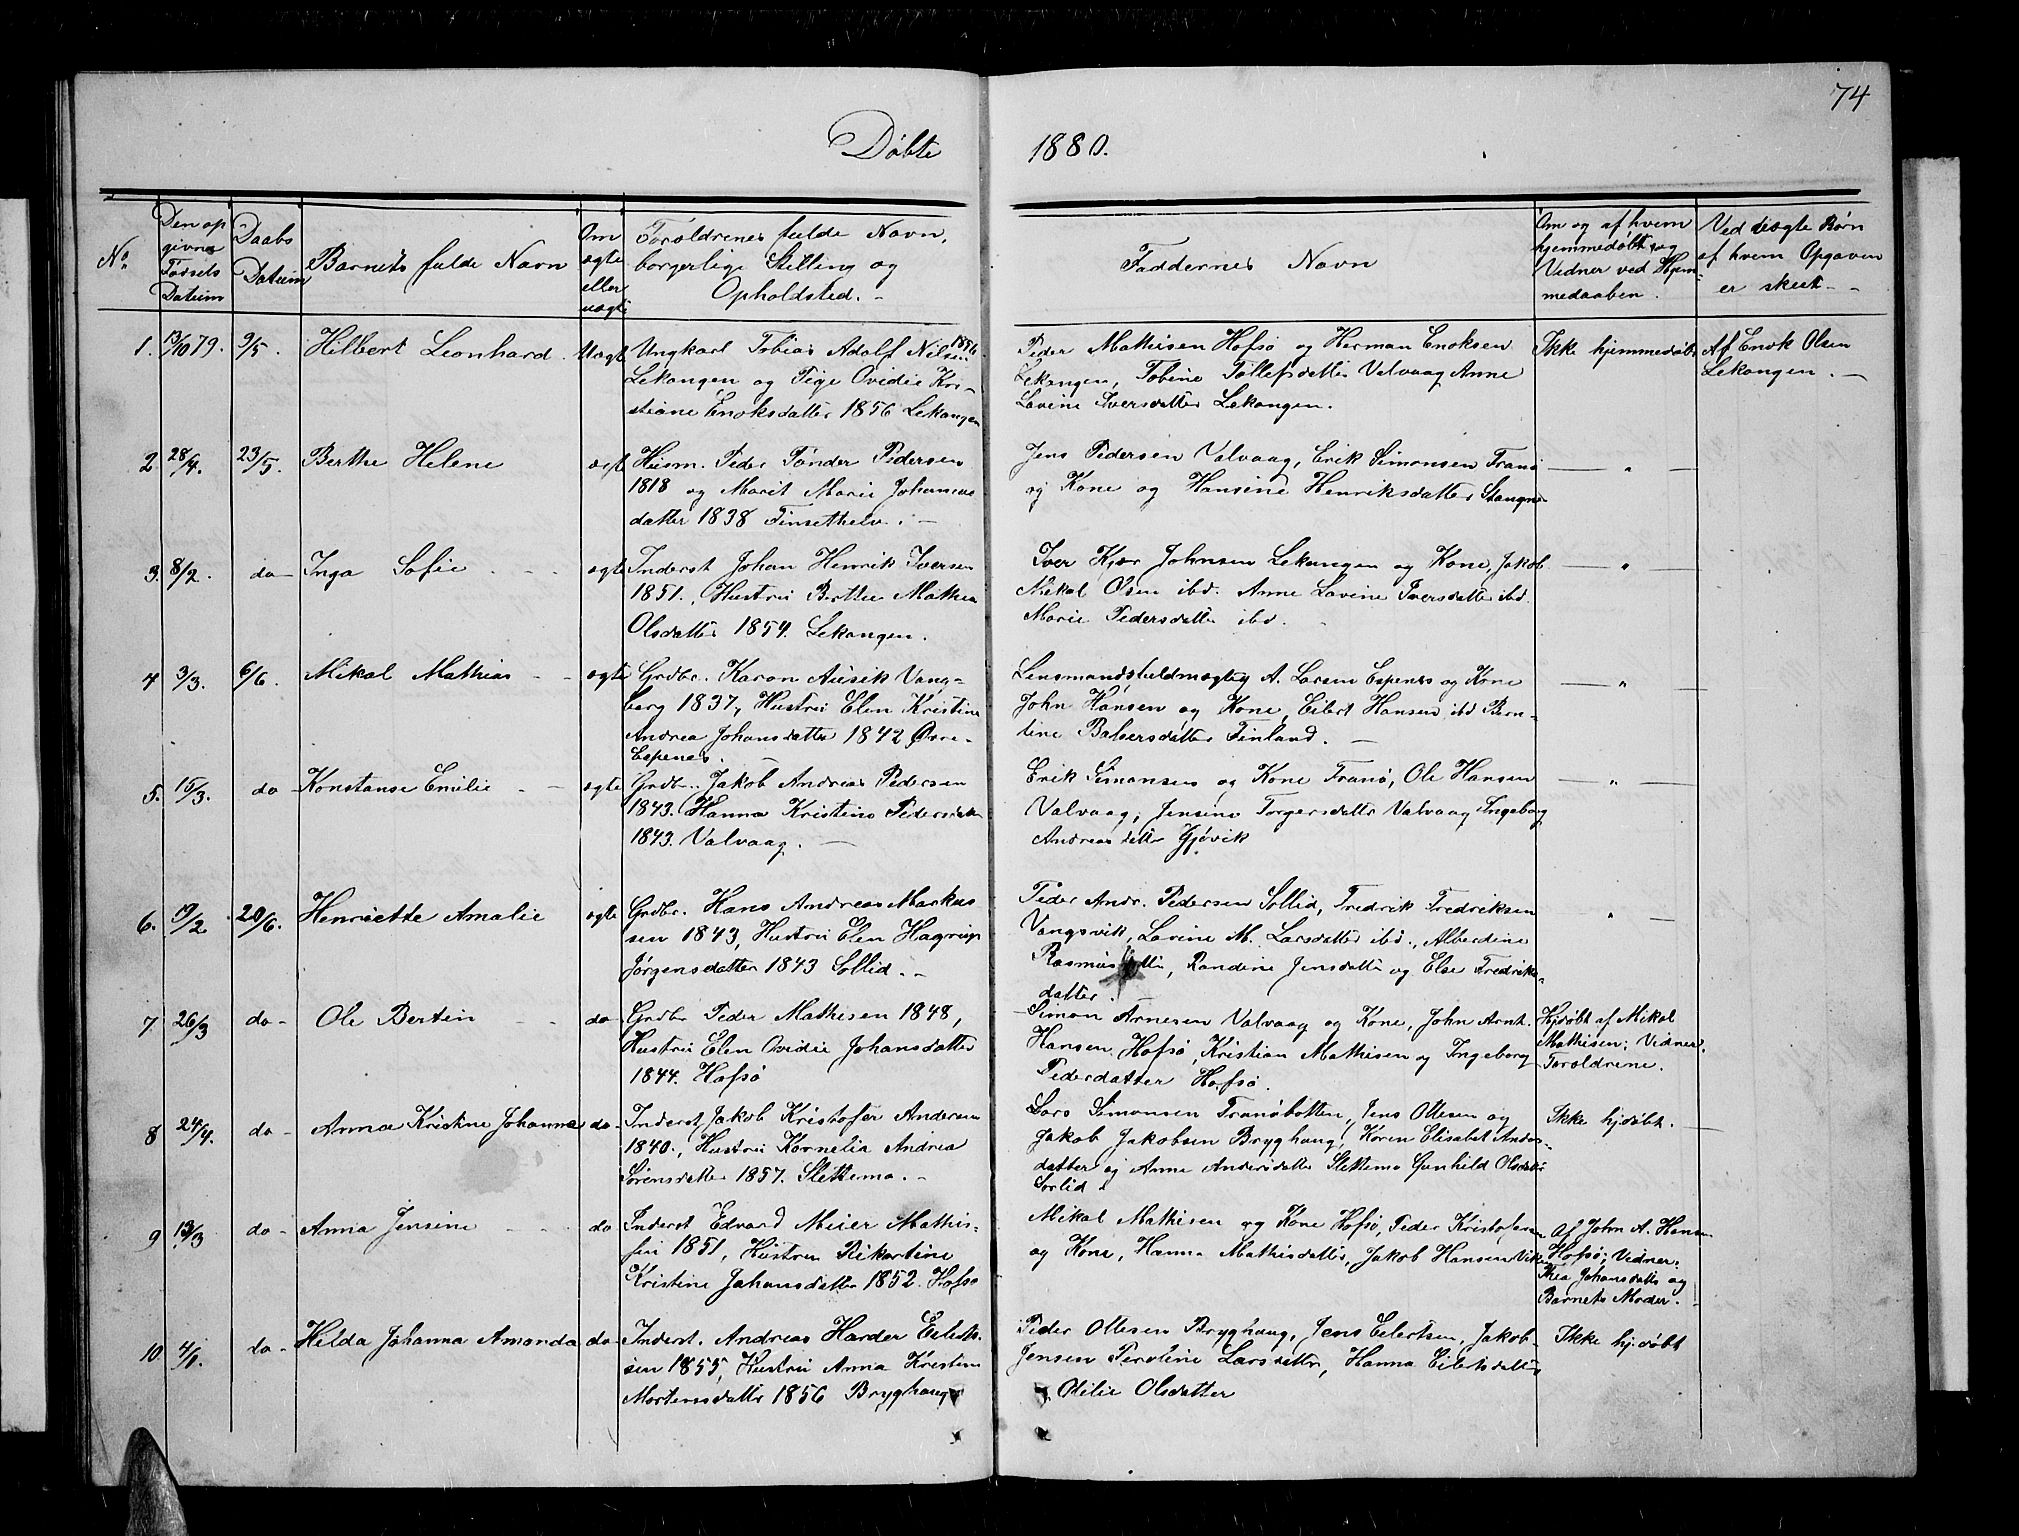 74
Døbte 1880.
No.
Den op
givne
Fødsels
Datum
Daabs
Datum
Barnets fulde Navn
Om
ægte
eller
uægte
Forældrenes fulde Navn,
borgerlige Stilling og
Opholdsted. -
Faddernes Navn
Om og af hvem
hjemmedøbt, og
Vidner ved Hjem-
medaaben.
Ved uægte Børn
af hvem Opgaven
er skeet -
1. 13/10 79. 9/5. Hilbert Leonhard. Uægte
Ungkarl Tobias Adolf Nilsen 1856
Lekangen og Pige Ovidie Kri-
stiane Enoksdatter 1856 Lekangen
Peder Mathisen Hofsø og Herman Enoksen
Lekangen, Tobine Tollefsdatter Valvaag Anne
Lovine Iversdatter Lekangen.
Ikke hjemmedøbt
Af Enok Olsen
Lekangen. -
2 28/4. 23/5. Berthe Helene ægte
Husm. Peder Tønder Pedersen
1818 og Marit Marie Johannes
datter 1838 Finsethelv. -
Jens Pedersen Valvaag, Erik Simonsen Tranø
og Kone og Hansine Henriksdatter Stangnes
— " —
3. 8/2. do - Inga Sofie - - ægte
Inderst Johan Henrik Iversen
1851., Hustru Berthe Mathea
Olsdatter 1854. Lekangen.
Iver Kjær Johnsen Lekangen og Kone, Jakob
Mikal Olsen ibd. Anne Lovine Iversdatter ibd.
Marie Pedersdatter ibd.
— " —
4 3/3. 6/6. Mikal Mathias - - ægte
Grdbr. Karon Ausik Vang-
berg 1837, Hustru Elen Kristine
Andrea Johansdatter 1842 Øvre-
Espenes. -
Lensmandsfuldmægtig A. Larsen Espenes og Kone
John Hansen og Kone, Eilert Hansen ibd Bern-
tine Balsersdatter Finland. -
— " —
5. 15/3. do Konstanse Emilie - - ægte
Grdbr. Jakob Andreas Pedersen
1843. Hanna Kristine Pedersdatter
1843. Valvaag. -
Erik Simonsen og Kone Tranø, Ole Hansen
Valvaag, Jensine Torgersdatter Valvaag Ingeborg
Andreasdatter Gjøvik
— " —
6. 19/2 20/6. Henriette Amalie ægte
Grdbr. Hans Andreas Markus
sen 1843, Hustru Elen
Jørgensdatter 1843 Sollid. -
Peder Andr. Pedersen Sollid, Fredrik Fredriksen
Vangsvik, Lovine M. Larsdatter ibd., Alberdine
Rasmusdatter, Randine Jensdatter og Else Fredriks-
datter.
" —
7 26/3 do - Ole Bertin - - do -
Grdbr Peder Mathisen 1848,
Hustru Elen Ovidie Johansdatter
1844. Hofsø
Simon Arnesen Valvaag og Kone, John Arnt.
Hansen Hofsø, Kristian Mathisen og Ingeborg
Pedersdatter Hofsø.
Hjdøbt af Mikal
Mathisen; Vidner:
Forældrene.
8 24/4. do - Anna Kristine Johanna do -
Inderst Jakob Kristofer Andersen
1840., Hustru Kornelia Andrea
Sørensdatter 1857. Slettemo. -
Lars Simonsen Tranøbotten, Jens Ottesen og
Jakob Jakobsen Bryghaug, Karen Elisabet Anders-
datter og Anne Andersdatter Slettemo Gunhild Olsdatter
Sørlid.
Ikke hjdøbt. -
9 13/3 do - Anna Jensine - - do
Inderst Edvard Meier Mathis-
sen 1851, Hustru Rikartine
Kristine Johansdatter 1852. Hofsø
Mikal Mathisen og Kone Hofsø, Peder Kristofersen
og Kone, Hanna Mathisdatter, Jakob Hansen Vik
Af John A. Hansen
Hofsø; Vidner:
Thea Johansdatter og
Barnets Moder. -
10 4/1. do - Hilda Johanna Amanda do -
Inderst. Andreas Harder Eilerts-
sen 1855, Hustru Anna Kristine
Mortensdatter 1856 Bryghaug
Peder Ottesen Bryghaug, Jens Eilertsen, Jakob
Jensen Peroline Larsdatter, Hanna Eilertsdatter
Odilie Olsdatter
Ikke hjdøbt